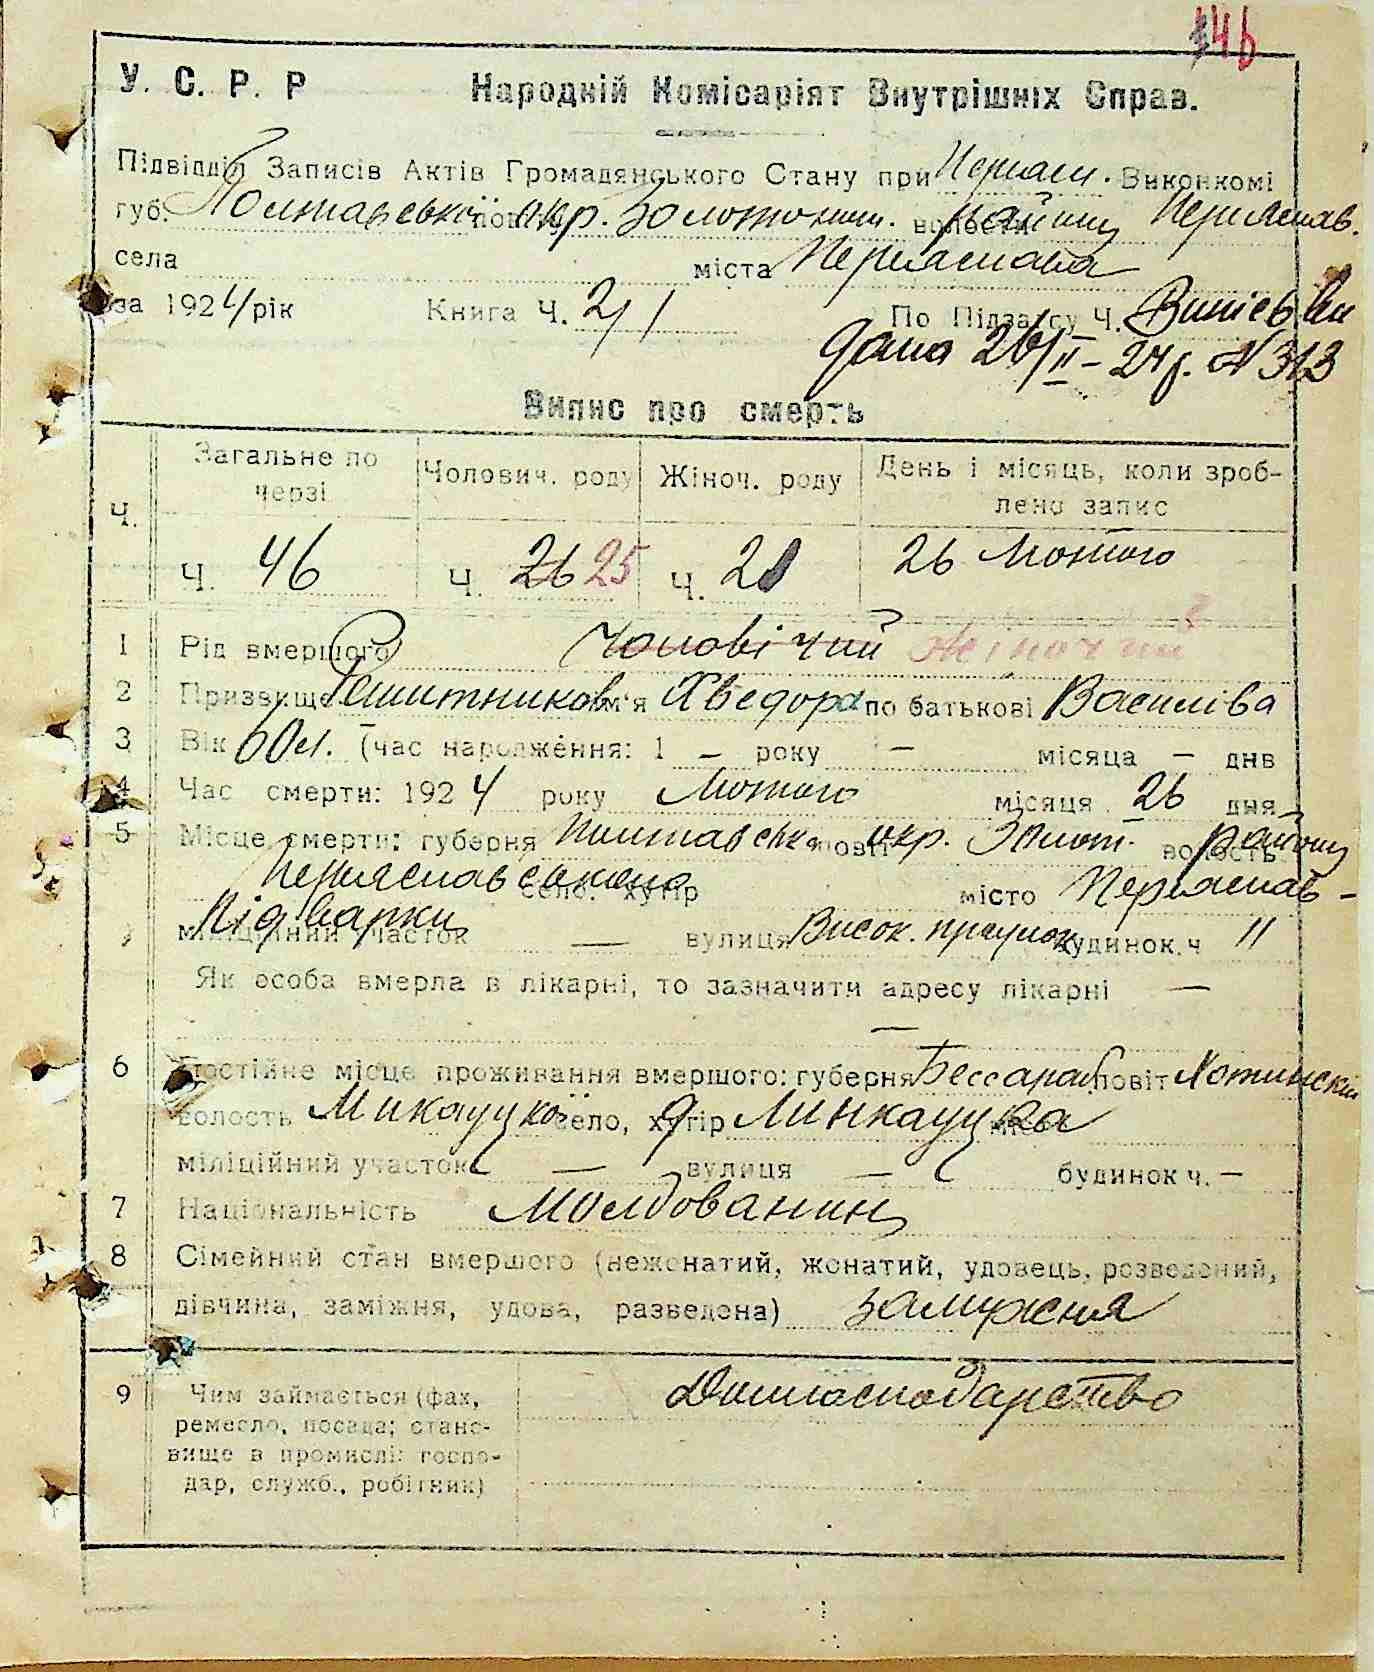 146
У. С. Р. Р Народній Комісаріят Внутрішніх Справ.
Підвідділ Записів Актів Громадянського Стану при Переясл. Виконкомі
губ. Полтавської окр. Золотонош. району Переяслав.
села міста Переяслава
за 1924 рік Книга Ч. 2/1 По Підзагсу Ч.
дана 26/II - 24 р. N 313
Випис про смерть
Ч. Загальне по черзі Чолович. роду Жіноч. роду День і місяць, коли зроблено запис
Ч. 46 Ч. 26 25 Ч. 21 26 Лютого
1 Рід вмершого Чоловічий Жіночий
2 Призвище ім'я Хведора по батькові Василіва
3 Вік 60 л. (час народження: 1 – року – місяца – днв
4 Час смерти: 1924 року Лютого місяця 26 дня
5 Місце смерти: губерня Полтавська повіт окр. Золот. волость району
Переяславського село, хутір місто Переяслав –
Підварки
міліційний участок — вулиця Висок. провулок будинок ч 11
Як особа вмерла в лікарні, то зазначити адресу лікарні —
—
6 Постійне місце проживання вмершого: губерня Бессараб повіт Хотинскій
волость село, хутір
міліційний участок — вулиця — будинок ч. —
7 Національність молдованин
8 Сімейний стан вмершого (неженатий, жонатий, удовець, розведений,
дівчина, заміжня, удова, разведена) замужня
9 Чим займається (фах, Домгосподарство
ремесло, посада; стано-
вище в промислі: госпо-
дар, служб., робітник)